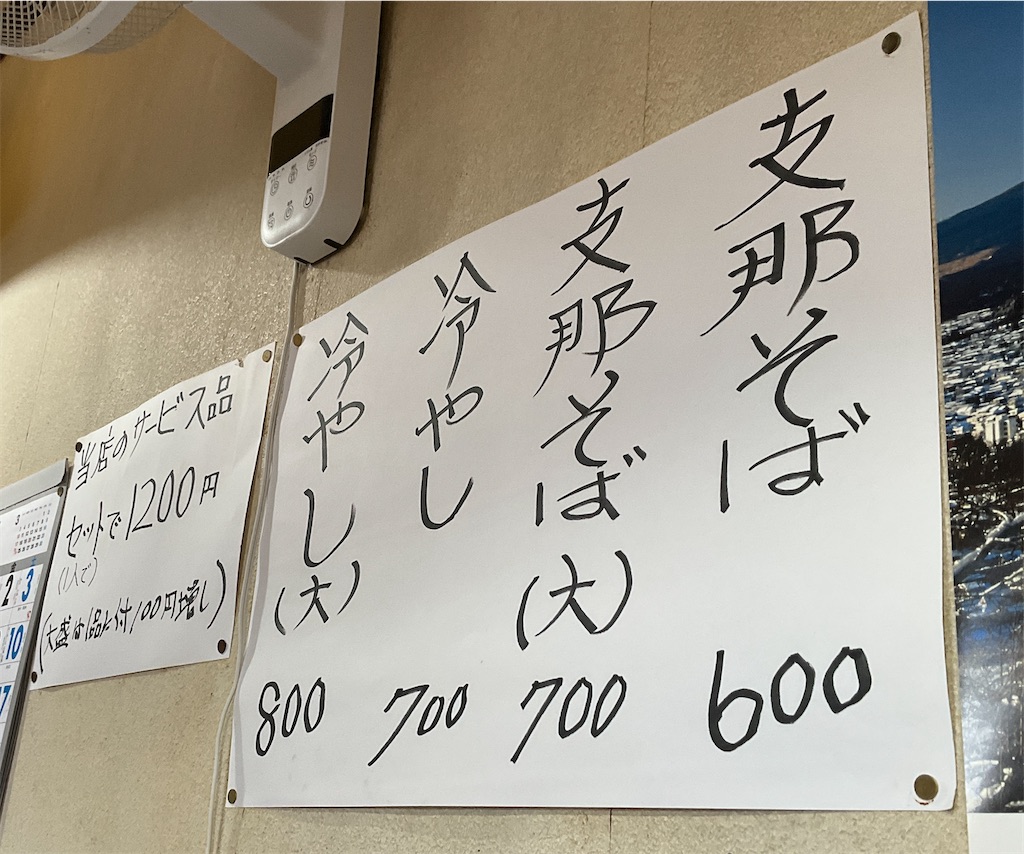 支那そば 600
支那そば(大) 700
冷やし 700
冷やし(大) 800
当店のサービス品
セットで1200円
(1人で)
(大盛は1品に付100円増し)
3
2 3
10
17